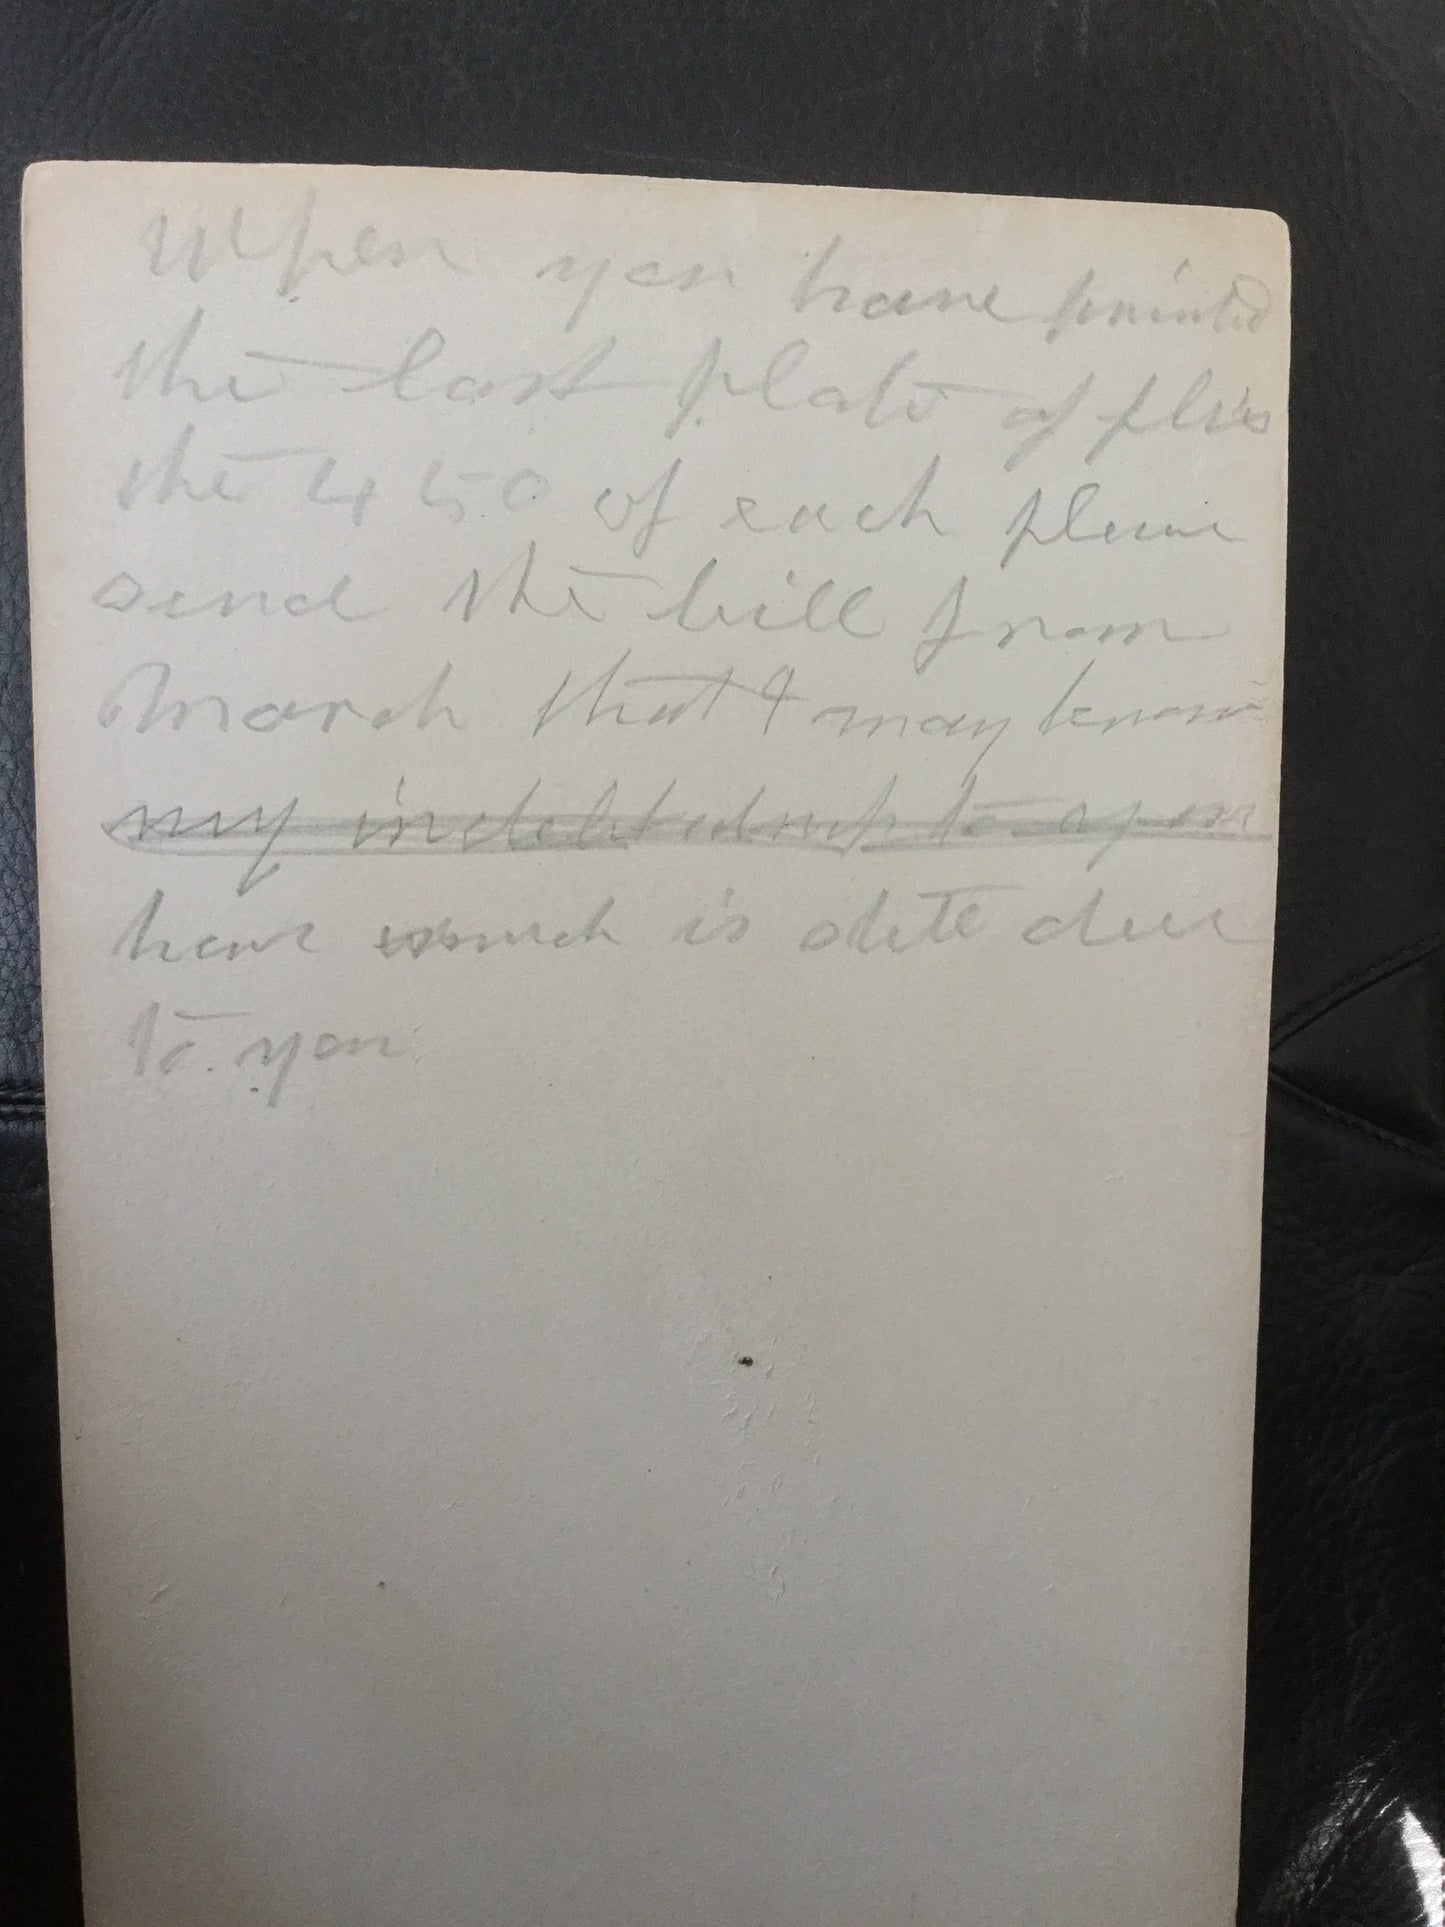 When you have printed
the last plate of
the 450 of each please
send the bill from
March that I may know
my indebtedness to you
how much is due
to you